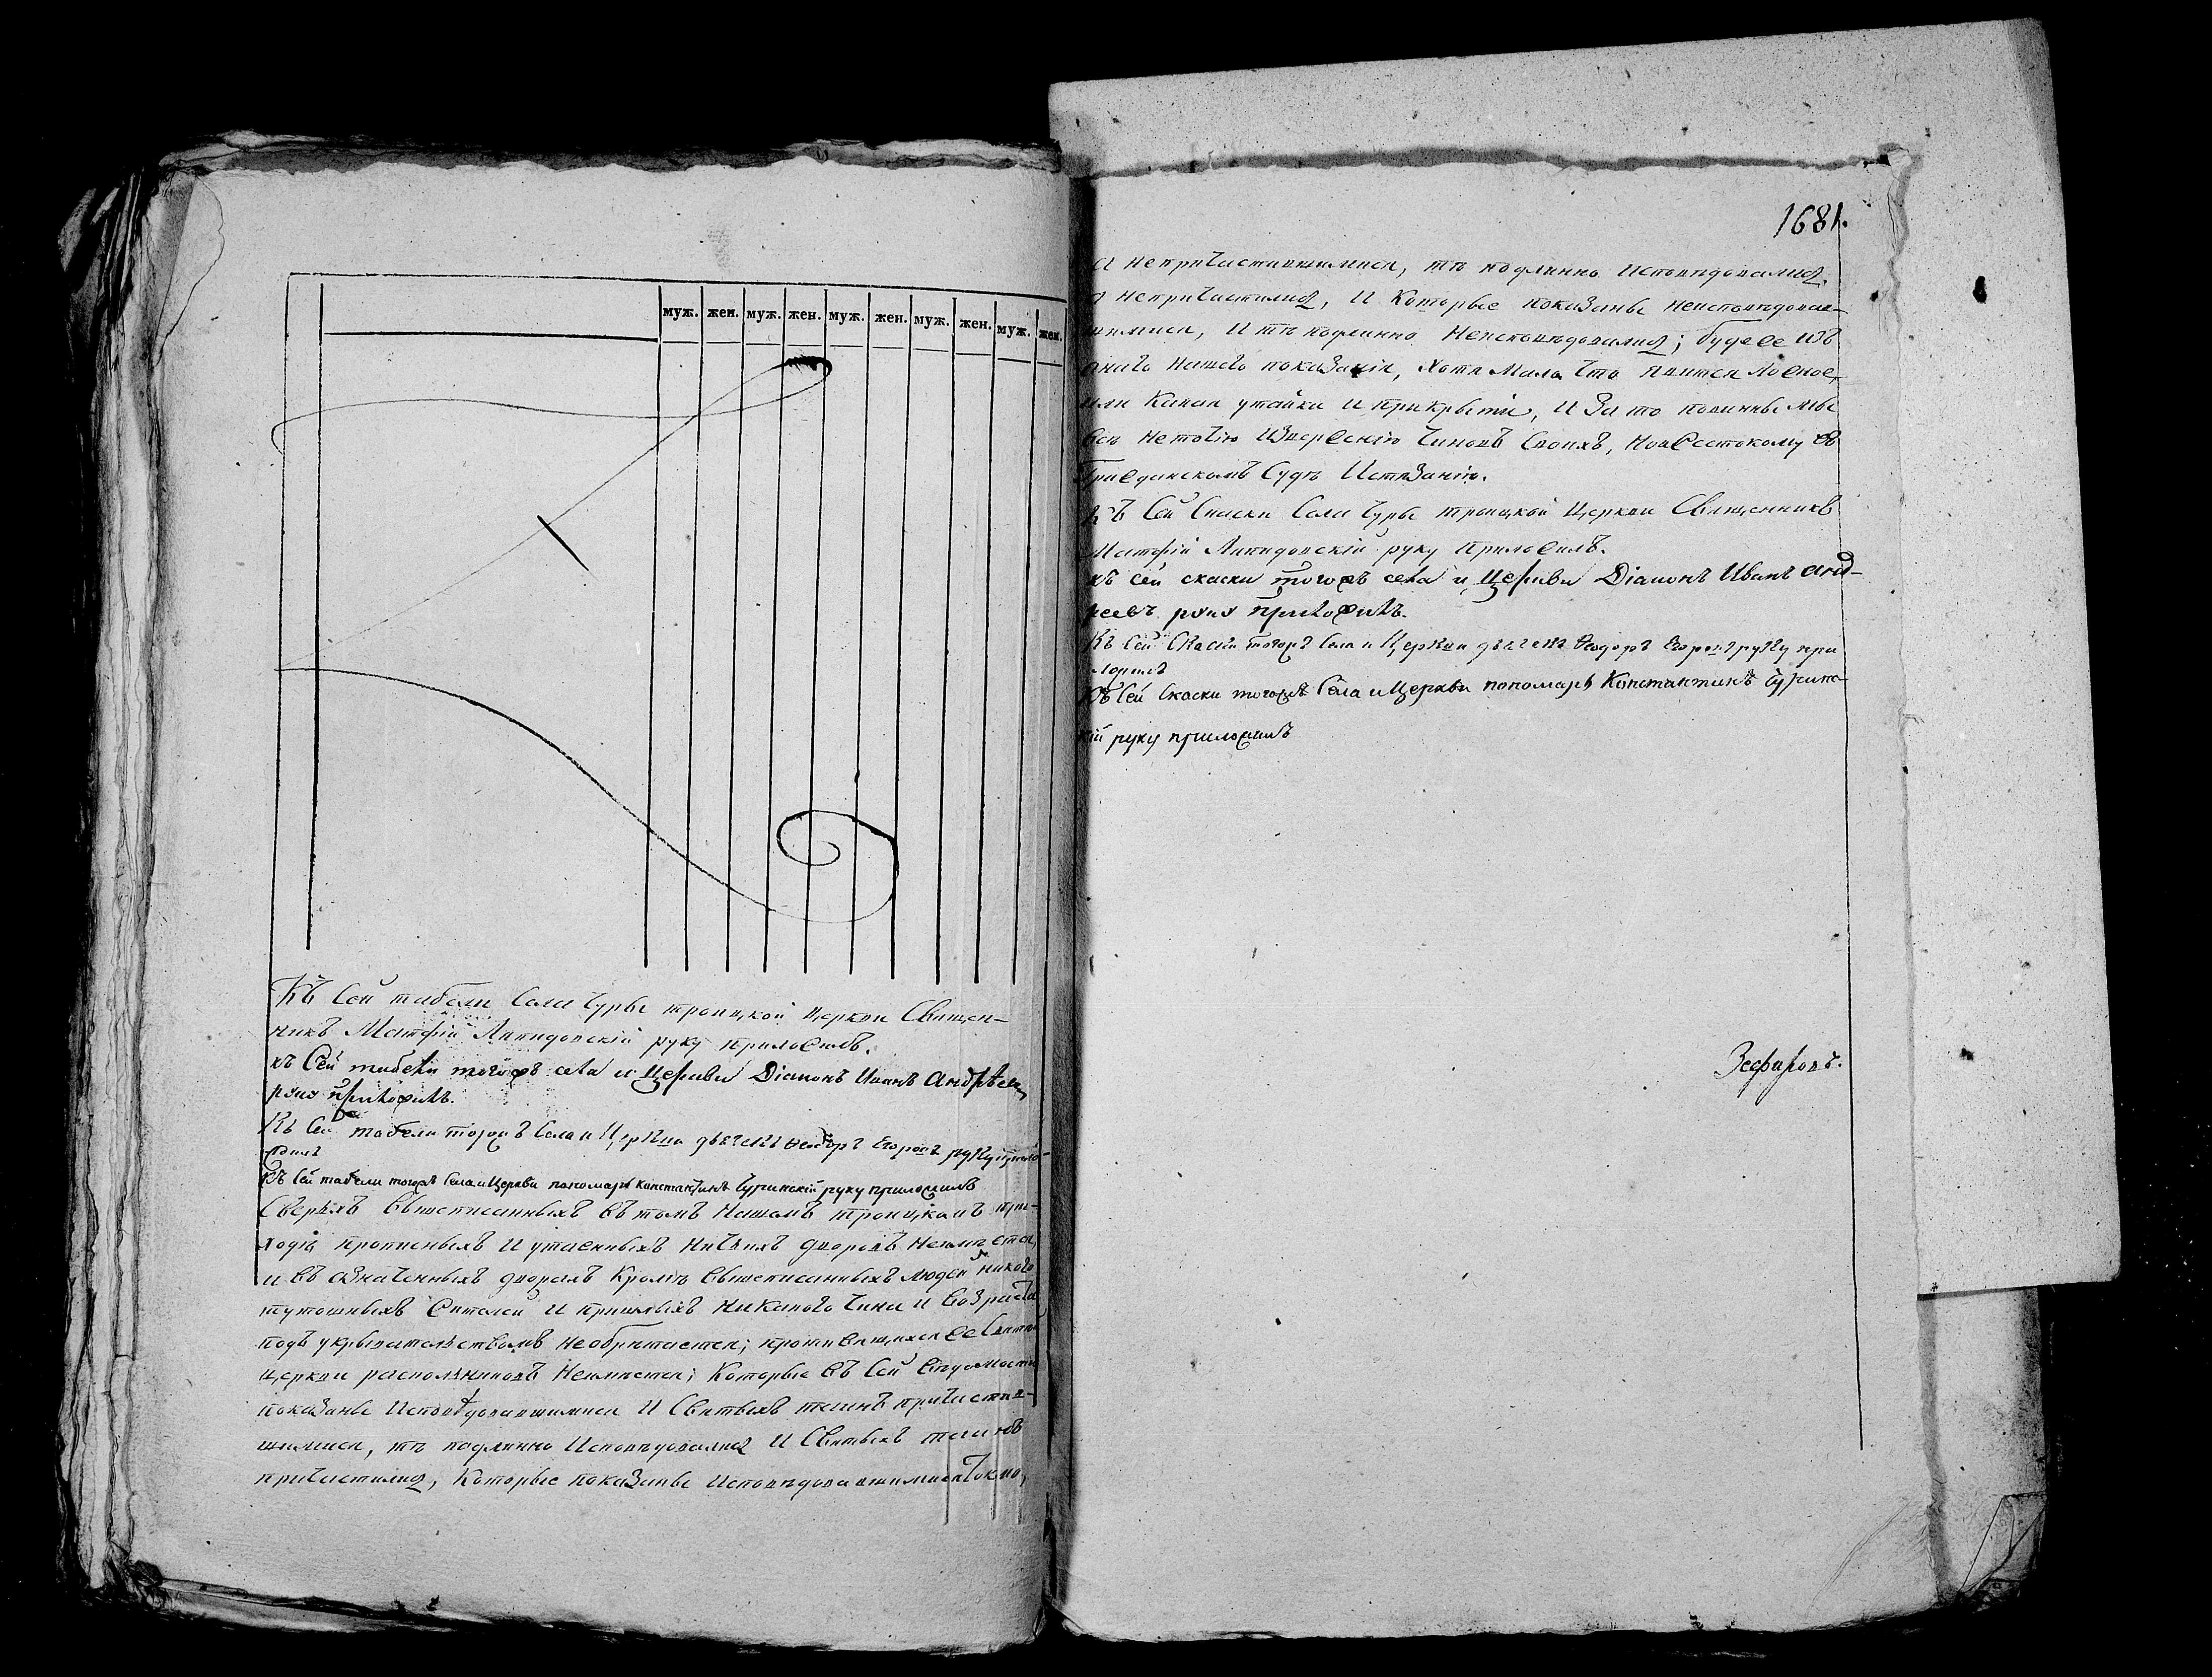 муж. жен. муж. жен. муж. жен. муж. жен. муж. жен.
Къ Сей табели Села Чуры троицкой церкви Священ-
никъ Матфій руку приложилъ.
къ Сей табели тогожъ села и церкви Діаконъ Иванъ Андрѣевъ
руку приложилъ.
Къ Сей табели тогожъ Села и Церкви дьячекъ Ѳеодоръ Егоровъ руку прило-
жилъ
Къ Сей табели тогожъ Села и Церкви пономарь Константинъ Чуринскій руку приложилъ
Сверьхъ вышеписанныхъ въ томъ Нашемъ троицкомъ при-
ходѣ прописныхъ и утаенныхъ ничьихъ дворовъ Неимѣется,
и въ означенныхъ дворахъ Кромѣ вышеписанныхъ людей никого
тутошныхъ жителей и пришлыхъ никакого чина и возраста
подъ укрывательствомъ необрѣтается; противящихся же Святѣй
церкви раскольниковъ Неимѣется; Которые въ Сей вѣдомости
показаны Исповѣдовавшимися И Святыхъ таинъ причастив-
шимися, тѣ подлинно Исповѣдовались И Святыхъ таинъ
причастились, Которые показаны Исповѣдовавшимися токмо,
1681.
а непричастившимися, тѣ подлинно исповѣдовались,
а непричастились, И Которые показаны неисповѣдовав-
шимися, И тѣ подлинно Неисповѣдовались; буде же изъ
онаго нашего показанія, хотя мало что явится ложное,
или какая утайка и прикрытіе, И За то повинны мы
всѣ неточію Изверженію чиновъ Своихъ, Но и жестокому въ
Гражданскомъ Судѣ Истязанію.
Къ Сей Скаски Села Чуры троицкой Церкви Священникъ
Матфій руку приложилъ.
къ сей скаски тогожъ села и церкви Діаконъ Иванъ Анд-
реевъ руку приложилъ.
Къ Сей Скаски тогожъ Села и Церкви дьячекъ Ѳеодоръ Егоровъ руку при
ложилъ
Къ Сей Скаски тогожъ Села и Церкви пономарь Константинъ Чуринс-
кій руку приложилъ
Зефировъ.